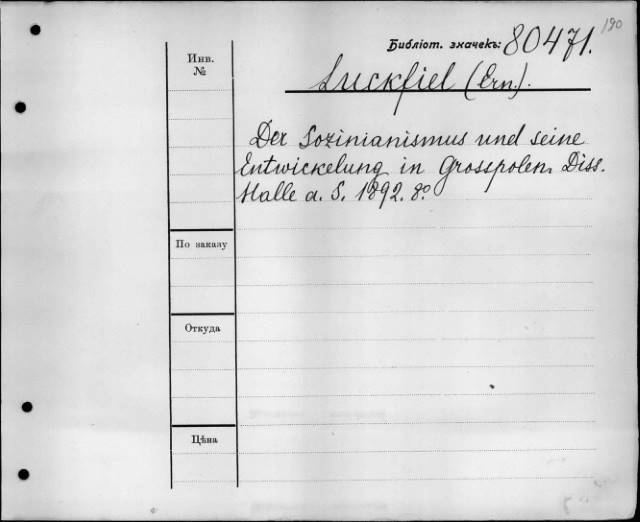 190
Библіот. значекъ: 80471.
Инв. №
Luckfiel (Ern.).
Der Sozinianismus und seine
Entwickelung in Grosspolen. Diss.
Halle a. S. 1892. 8º.
По заказу
Откуда
Цѣна